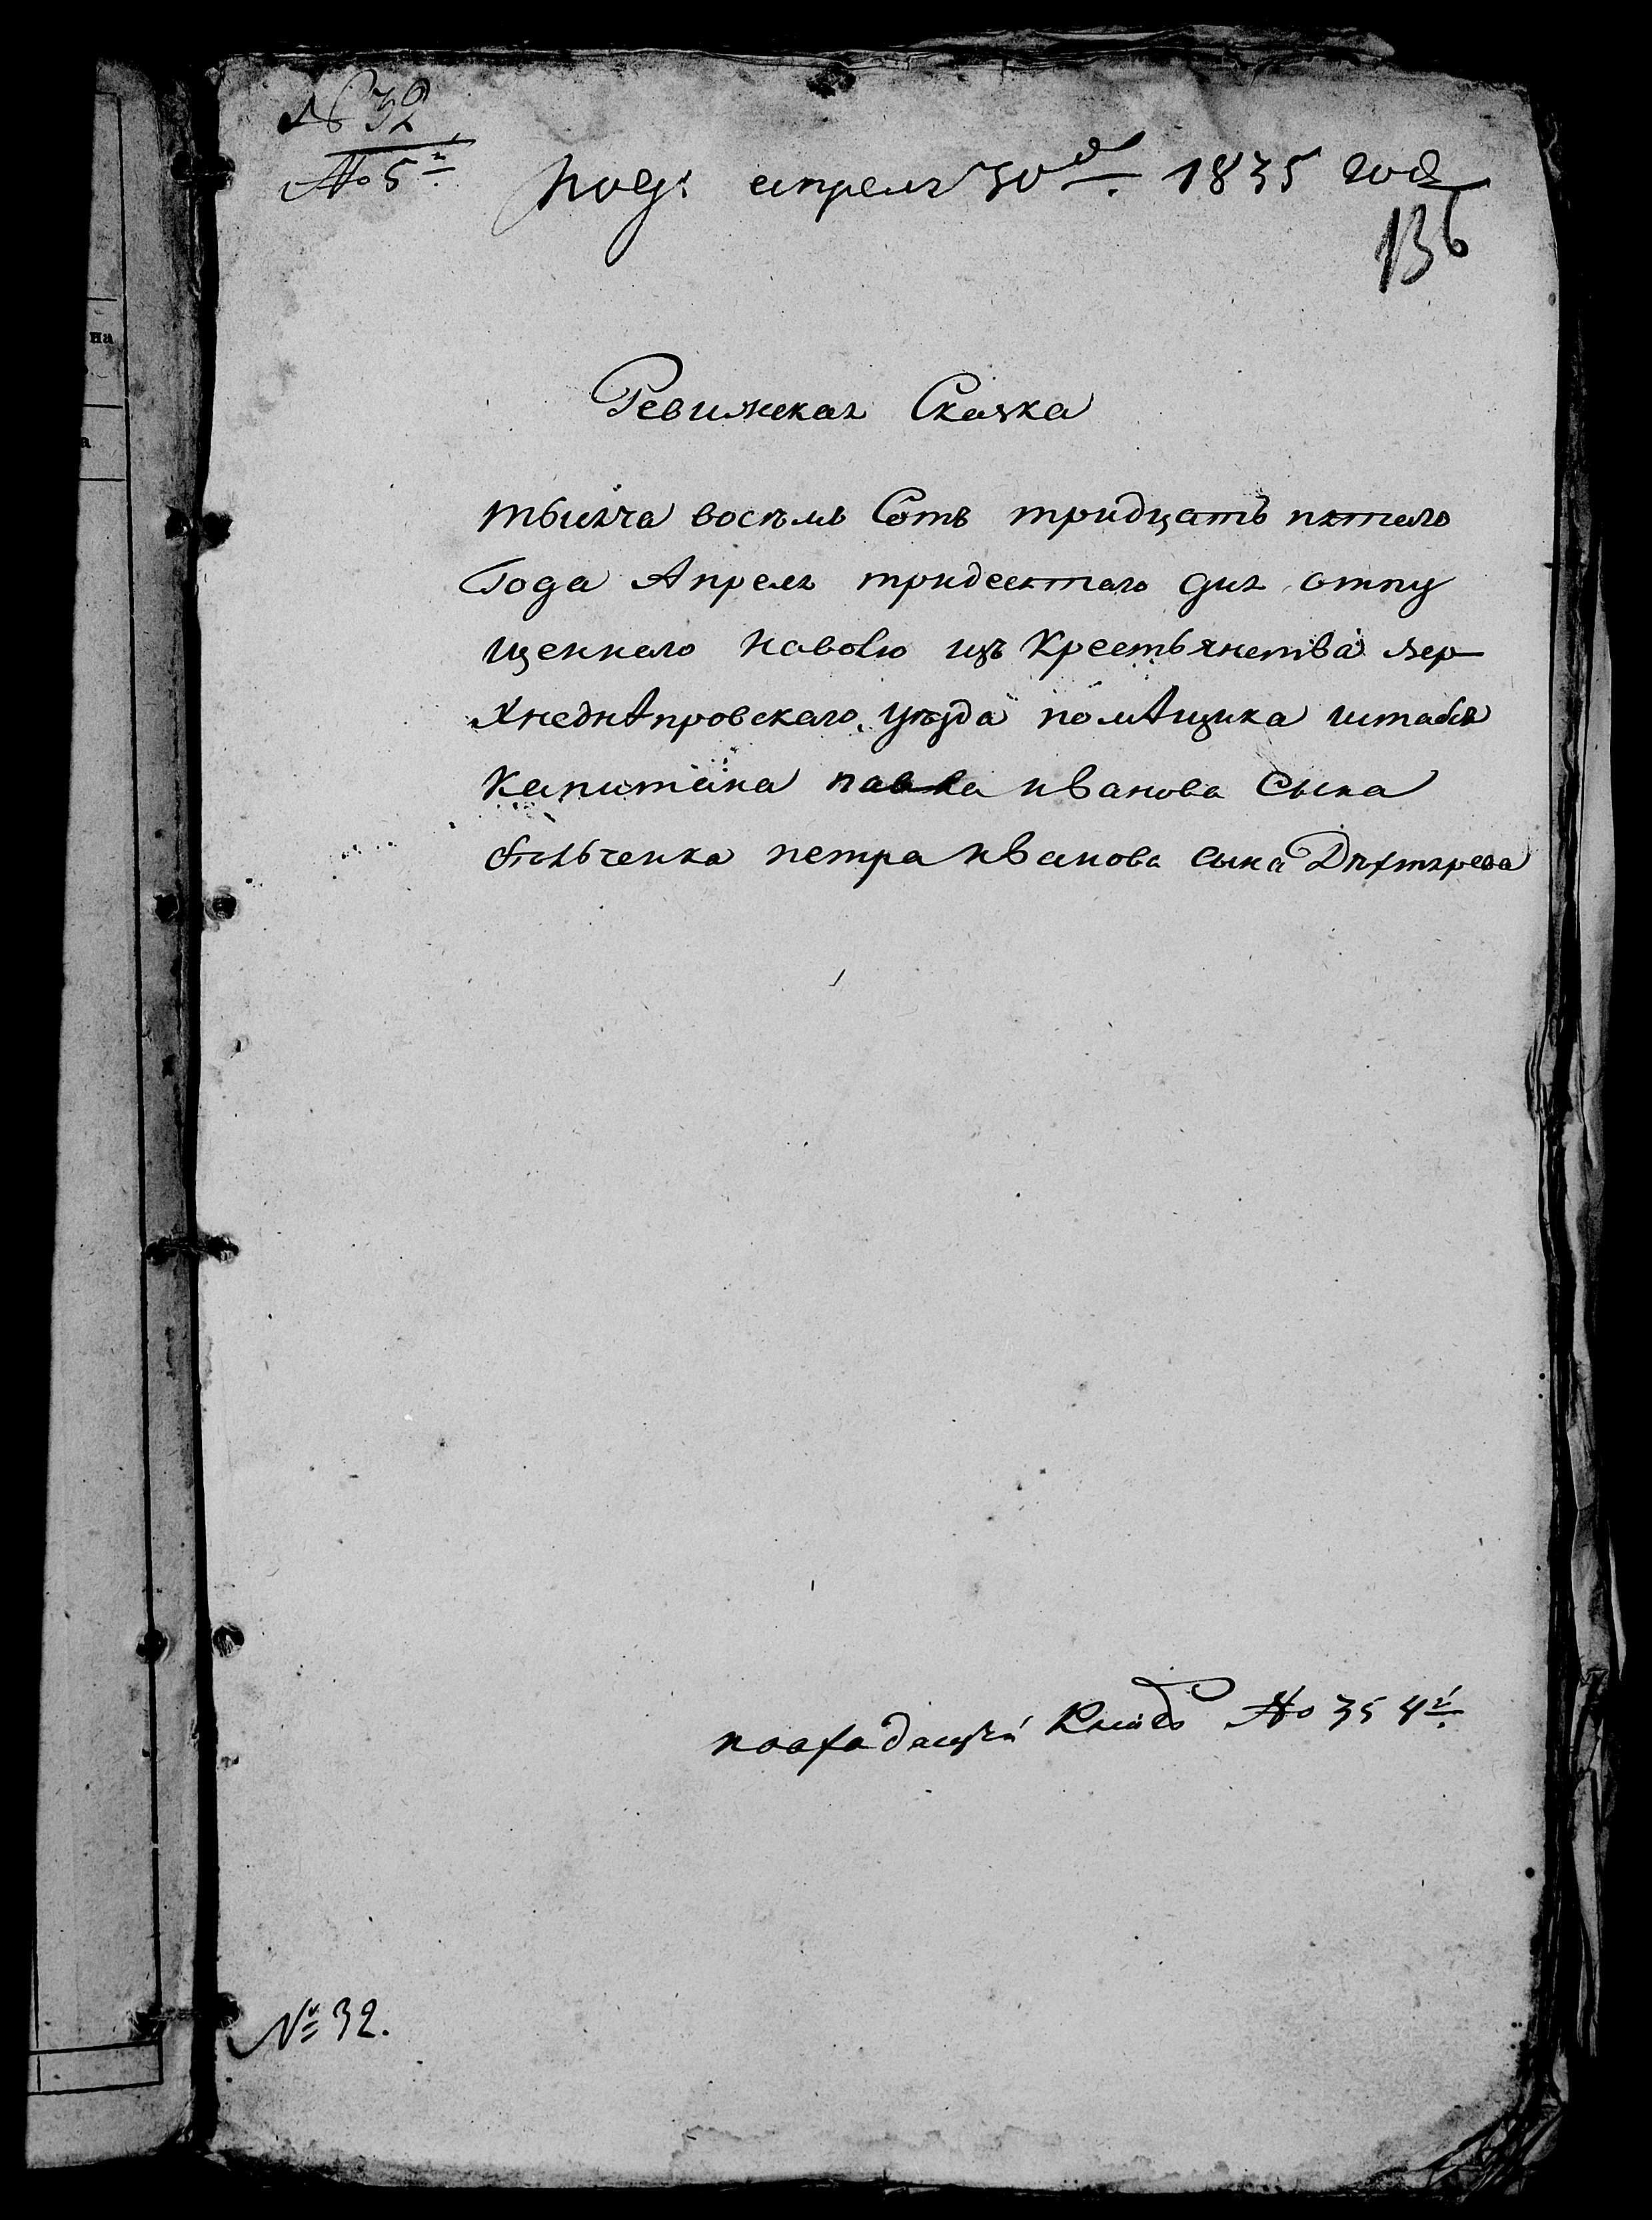 № 32
№ 5й
под: апреля 30го 1835 года
136
на
а
Ревижская Сказка
тысяча восемь Сотъ тридцать пятаго
Года Апреля тридесятаго дня отпу
щеннаго наволю изъ Крестьянства Вер-
хнеднѣпровскаго уѣзда помѣщика штабсъ
Капитана павла иванова Сына
бѣльченка петра иванова сына Дѣхтярева
№ 354й
№ 32.